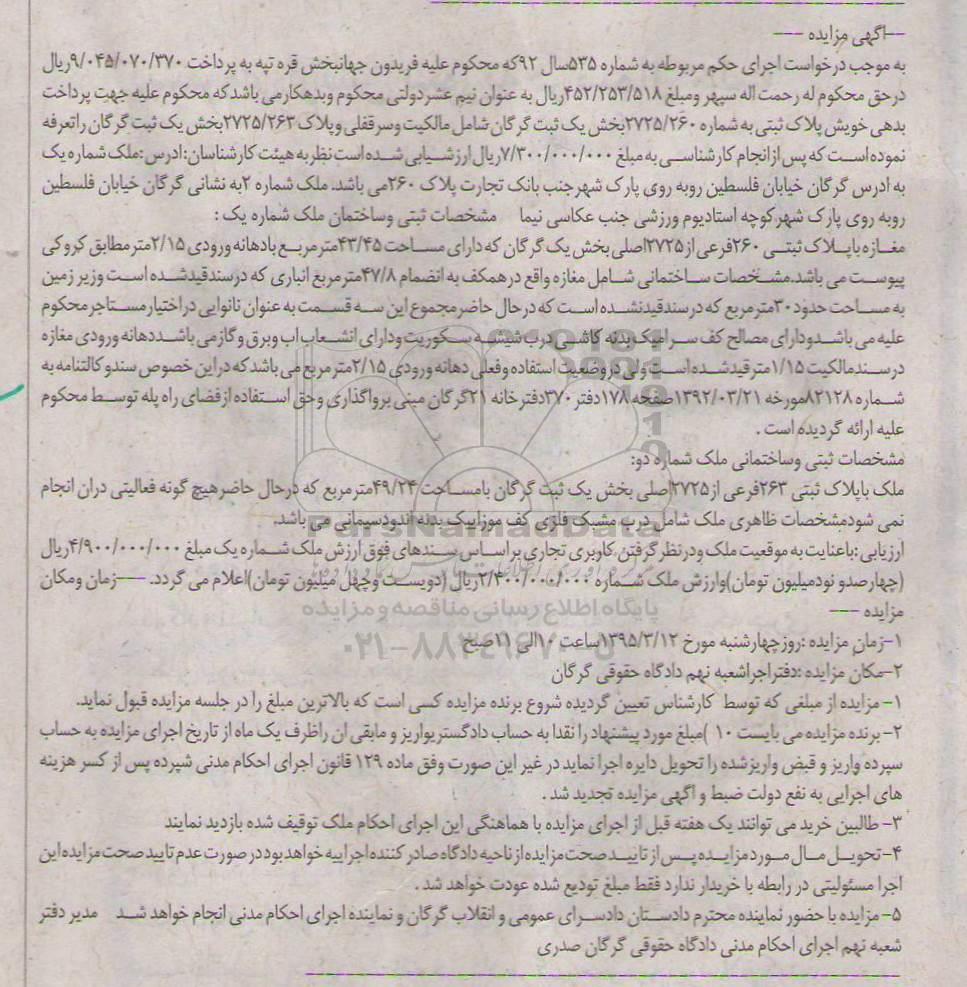 --آگهی مزایده ---
به موجب درخواست اجرای حکم مربوطه به شماره ۵۳۵سال ۹۲که محکوم علیه فریدون جهانبخش قره تپه به پرداخت ۹/۰۴۵/۰۷۰/۳۷۰ریال
درحق محکوم له رحمت اله سپهر ومبلغ ۴۵۲/۲۵۳/۵۱۸ریال به عنوان نیم عشردولتی محکوم وبدهکارمی باشد که محکوم علیه جهت پرداخت
بدهی خویش پلاک ثبتی به شماره ۲۷۲۵/۲۶۰بخش یک ثبت گرگان شامل مالکیت وسرقفلی وپلاک ۲۷۲۵/۲۶۳بخش یک ثبت گرگان راتعرفه
نموده است که پس ازانجام کارشناسی به مبلغ ۷/۳۰۰/۰۰۰/۰۰۰ریال ارزشیابی شده است نظربه هیئت کارشناسان: ادرس: ملک شماره یک
به ادرس گرگان خیابان فلسطین روبه روی پارک شهرجنب بانک تجارت پلاک ۲۶۰می باشد. ملک شماره ۲به نشانی گرگان خیابان فلسطین
روبه روی پارک شهرکوچه استادیوم ورزشی جنب عکاسی نیما مشخصات ثبتی وساختمان ملک شماره یک :
مغازه باپلاک ثبتی ۲۶۰فرعی از۲۷۲۵اصلی بخش یک گرگان که دارای مساحت ۴۳/۴۵مترمربع بادهانه ورودی ۲/۱۵مترمطابق کروکی
پیوست می باشد.مشخصات ساختمانی شامل مغازه واقع درهمکف به انضمام ۴۷/۸مترمربع انباری که درسندقیدشده است وزیر زمین
به مساحت حدود۳۰مترمربع که درسندقیدنشده است که درحال حاضرمجموع این سه قسمت به عنوان نانوایی دراختیارمستاجرمحکوم
علیه می باشدودارای مصالح کف سرامیک بدنه کاشی درب شیشه سکوریت ودارای انشعاب اب وبرق وگازمی باشددهانه ورودی مغازه
درسندمالکیت ۱/۱۵مترقیدشده است ولی دروضعیت استفاده وفعلی دهانه ورودی ۲/۱۵مترمربع می باشد که دراین خصوص سندوکالتنامه به
شماره ۸۲۱۲۸مورخه ۱۳۹۲/۰۳/۲۱صفحه ۱۷۸دفتر ۳۷۰دفترخانه ۲۱گرگان مبنی برواگذاری وحق استفاده ازفضای راه پله توسط محکوم
علیه ارائه گردیده است .
مشخصات ثبتی وساختمانی ملک شماره دو:
ملک باپلاک ثبتی ۲۶۳فرعی از۲۷۲۵اصلی بخش یک ثبت گرگان بامساحت ۴۹/۲۴مترمربع که درحال حاضرهیچ گونه فعالیتی دران انجام
نمی شودمشخصات ظاهری ملک شامل درب مشبک فلزی کف موزاییک بدنه اندودسیمانی می باشد.
ارزیابی: باعنایت به موقعیت ملک ودرنظرگرفتن کاربری تجاری براساس سندهای فوق ارزش ملک شماره یک مبلغ ۴/۹۰۰/۰۰۰/۰۰۰ریال
(چهارصدو نودمیلیون تومان)وارزش ملک شماره ۲/۴۰۰/۰۰۰/۰۰۰ریال (دویست وچهل میلیون تومان)اعلام می گردد. ---زمان ومکان
مزایده ---
۱-زمان مزایده :روزچهارشنبه مورخ ۱۳۹۵/۳/۱۲ساعت ۱۰الی ۱۱صبح
۲-مکان مزایده :دفتراجراشعبه نهم دادگاه حقوقی گرگان
۱- مزایده از مبلغی که توسط کارشناس تعیین گردیده شروع برنده مزایده کسی است که بالاترین مبلغ را در جلسه مزایده قبول نماید.
۲- برنده مزایده می بایست ۱۰ )مبلغ مورد پیشنهاد را نقدا به حساب دادگستریواریز و مابقی ان راظرف یک ماه از تاریخ اجرای مزایده به حساب
سپرده واریز و قبض واریزشده را تحویل دایره اجرا نماید در غیر این صورت وفق ماده ۱۲۹ قانون اجرای احکام مدنی شپرده پس از کسر هزینه
های اجرایی به نفع دولت ضبط و اگهی مزایده تجدید شد .
۳- طالبین خرید می توانند یک هفته قبل از اجرای مزایده با هماهنگی این اجرای احکام ملک توقیف شده بازدید نمایند
۴- تحویل مال مورد مزایده پس از تایید صحت مزایده از ناحیه دادگاه صادر کننده اجراییه خواهد بود در صورت عدم تایید صحت مزایده این
اجرا مسئولیتی در رابطه با خریدار ندارد فقط مبلغ تودیع شده عودت خواهد شد .
۵- مزایده با حضور نماینده محترم دادستان دادسرای عمومی و انقلاب گرگان و نماینده اجرای احکام مدنی انجام خواهد شد مدیر دفتر
شعبه نهم اجرای احکام مدنی دادگاه حقوقی گرگان صدری
ParsNamadData
پایگاه اطلاع رسانی مناقصه و مزایده